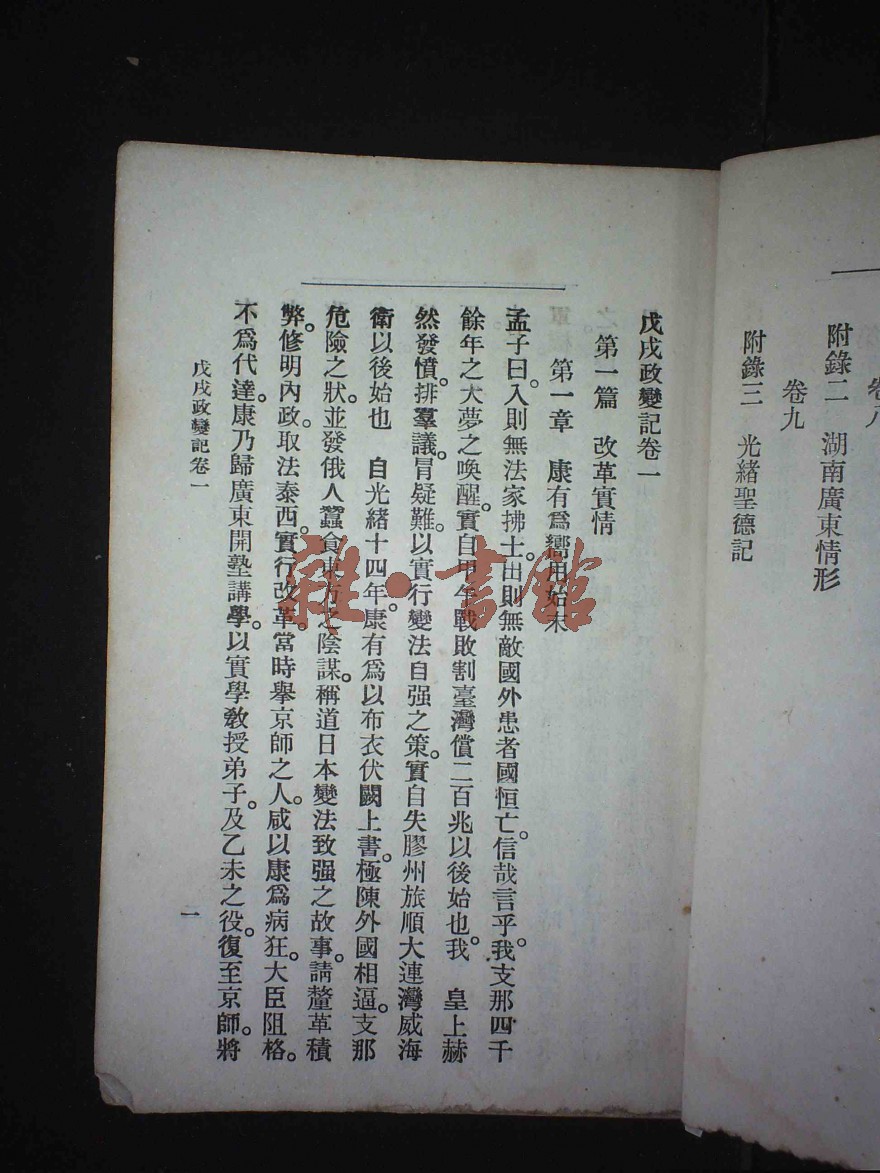 卷八
附錄二　湖南廣東情形
卷九
附錄三　光緒聖德記
戊戌政變記卷一
第一篇　改革實情
第一章　康有爲嚮用始末
孟子曰。入則無法家拂士。出則無敵國外患者國恒亡。信哉言乎。我支那四千
餘年之大夢之喚醒。實自甲午戰敗割臺灣償二百兆以後始也。我　皇上赫
然發憤。排羣議。冒疑難。以實行變法自强之策。實自失膠州旅順大連灣威海
衛以後始也　自光緒十四年。康有爲以布衣伏闕上書。極陳外國相逼。支那
危險之狀。並發俄人蠶食東方之陰謀。稱道日本變法致强之故事。請釐革積
弊。修明內政。取法泰西。實行改革。當時舉京師之人。咸以康爲病狂。大臣阻格。
不爲代達。康乃歸廣東開塾講學。以實學敎授弟子。及乙未之役。復至京師。將
戊戌政變記卷一
一
雜·書館